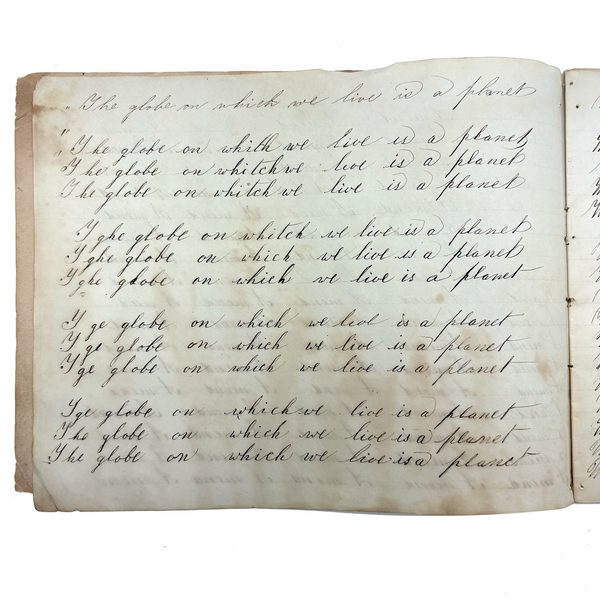 „ The globe on which we live is a planet
„ The globe on whith we live is a planet
The globe on whitch we live is a planet
The globe on whitch we live is a planet
Yghe globe on whitch we live is a planet
Yghe globe on which we live is a planet
Yghe globe on which we live is a planet
Yge globe on which we live is a planet
Yge globe on which wi live is a planet
Yge globe on which we live is a planet
Yge globe on which we live is a planet
The globe on which we live is a planet
The globe on which we live is a planet